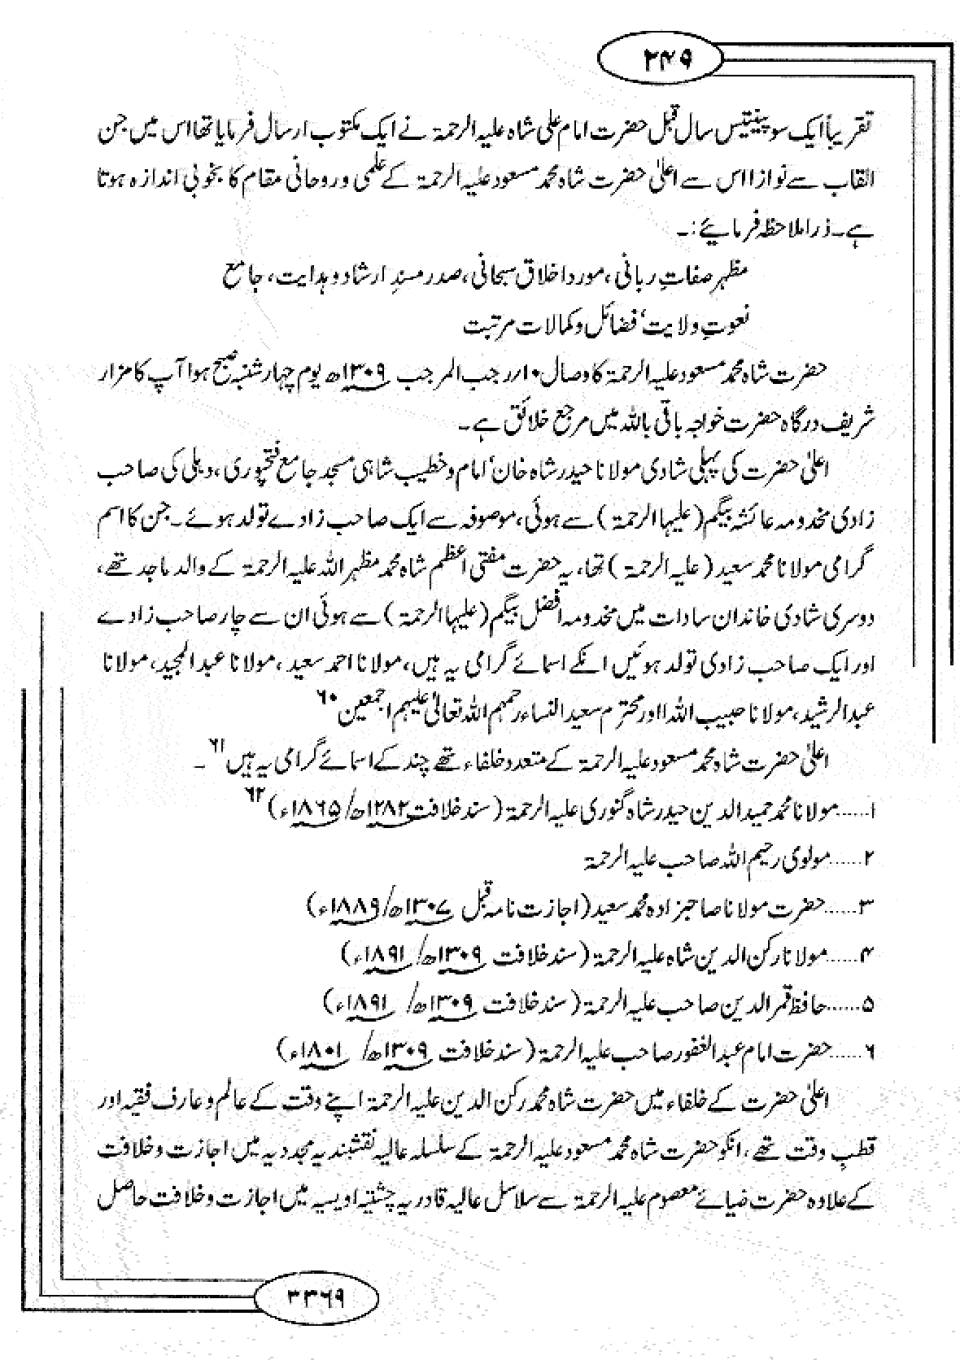 ۲۴۹
تقریباً ایک سو پینتیس سال قبل حضرت امام علی شاہ علیہ الرحمۃ نے ایک مکتوب ارسال فرمایا تھا اس میں جن
القاب سے نوازا اس سے اعلیٰ حضرت شاہ محمد مسعود علیہ الرحمۃ کے علمی و روحانی مقام کا بخوبی اندازہ ہوتا
ہے۔ ذرا ملاحظہ فرمائیے:۔
مظہر صفاتِ ربانی، مورد اخلاق سبحانی، صدر مسندِ ارشاد و ہدایت، جامع
نعوتِ ولایت، فضائل و کمالات مرتبت
حضرت شاہ محمد مسعود علیہ الرحمۃ کا وصال ۱۰؍رجب المرجب ۱۳۰۹ھ یوم چہار شنبہ صبح ہوا آپ کا مزار
شریف درگاہ حضرت خواجہ باقی باللہ میں مرجع خلائق ہے۔
اعلیٰ حضرت کی پہلی شادی مولانا حیدر شاہ خان، امام و خطیب شاہی مسجد جامع فتحپوری، دہلی کی صاحب
زادی مخدومہ عائشہ بیگم (علیہا الرحمۃ) سے ہوئی، موصوفہ سے ایک صاحب زادے تولد ہوئے۔ جن کا اسم
گرامی مولانا محمد سعید (علیہ الرحمۃ) تھا، یہ حضرت مفتی اعظم شاہ محمد مظہر اللہ علیہ الرحمۃ کے والد ماجد تھے،
دوسری شادی خاندان سادات میں مخدومہ افضل بیگم (علیہا الرحمۃ) سے ہوئی ان سے چار صاحب زادے
اور ایک صاحب زادی تولد ہوئیں انکے اسمائے گرامی یہ ہیں، مولانا احمد سعید، مولانا عبدالمجید، مولانا
عبدالرشید، مولانا حبیب اللہ اور محترم سعید النساء رحمہم اللہ تعالیٰ علیہم اجمعین ۶۰
اعلیٰ حضرت شاہ محمد مسعود علیہ الرحمۃ کے متعدد خلفاء تھے چند کے اسمائے گرامی یہ ہیں ۶۱۔
۱......مولانا محمد حمید الدین حیدر شاہ گنوری علیہ الرحمۃ (سند خلافت ۱۲۸۲ھ/۱۸۶۵ء) ۶۲
۲......مولوی رحیم اللہ صاحب علیہ الرحمۃ
۳......حضرت مولانا صاحبزادہ محمد سعید (اجازت نامہ قبل ۱۳۰۷ھ/۱۸۸۹ء)
۴......مولانا رکن الدین شاہ علیہ الرحمۃ (سند خلافت ۱۳۰۹ھ/۱۸۹۱ء)
۵......حافظ قمر الدین صاحب علیہ الرحمۃ (سند خلافت ۱۳۰۹ھ/ ۱۸۹۱ء)
۶......حضرت امام عبدالغفور صاحب علیہ الرحمۃ (سند خلافت ۱۳۰۹ھ/ ۱۸۰۱ء)
اعلیٰ حضرت کے خلفاء میں حضرت شاہ محمد رکن الدین علیہ الرحمۃ اپنے وقت کے عالم و عارف فقیہ اور
قطبِ وقت تھے، انکو حضرت شاہ محمد مسعود علیہ الرحمۃ کے سلسلہ عالیہ نقشبندیہ مجددیہ میں اجازت و خلافت
کے علاوہ حضرت ضیائے معصوم علیہ الرحمۃ سے سلاسل عالیہ قادریہ چشتیہ اویسیہ میں اجازت و خلافت حاصل
۳۳۶۹